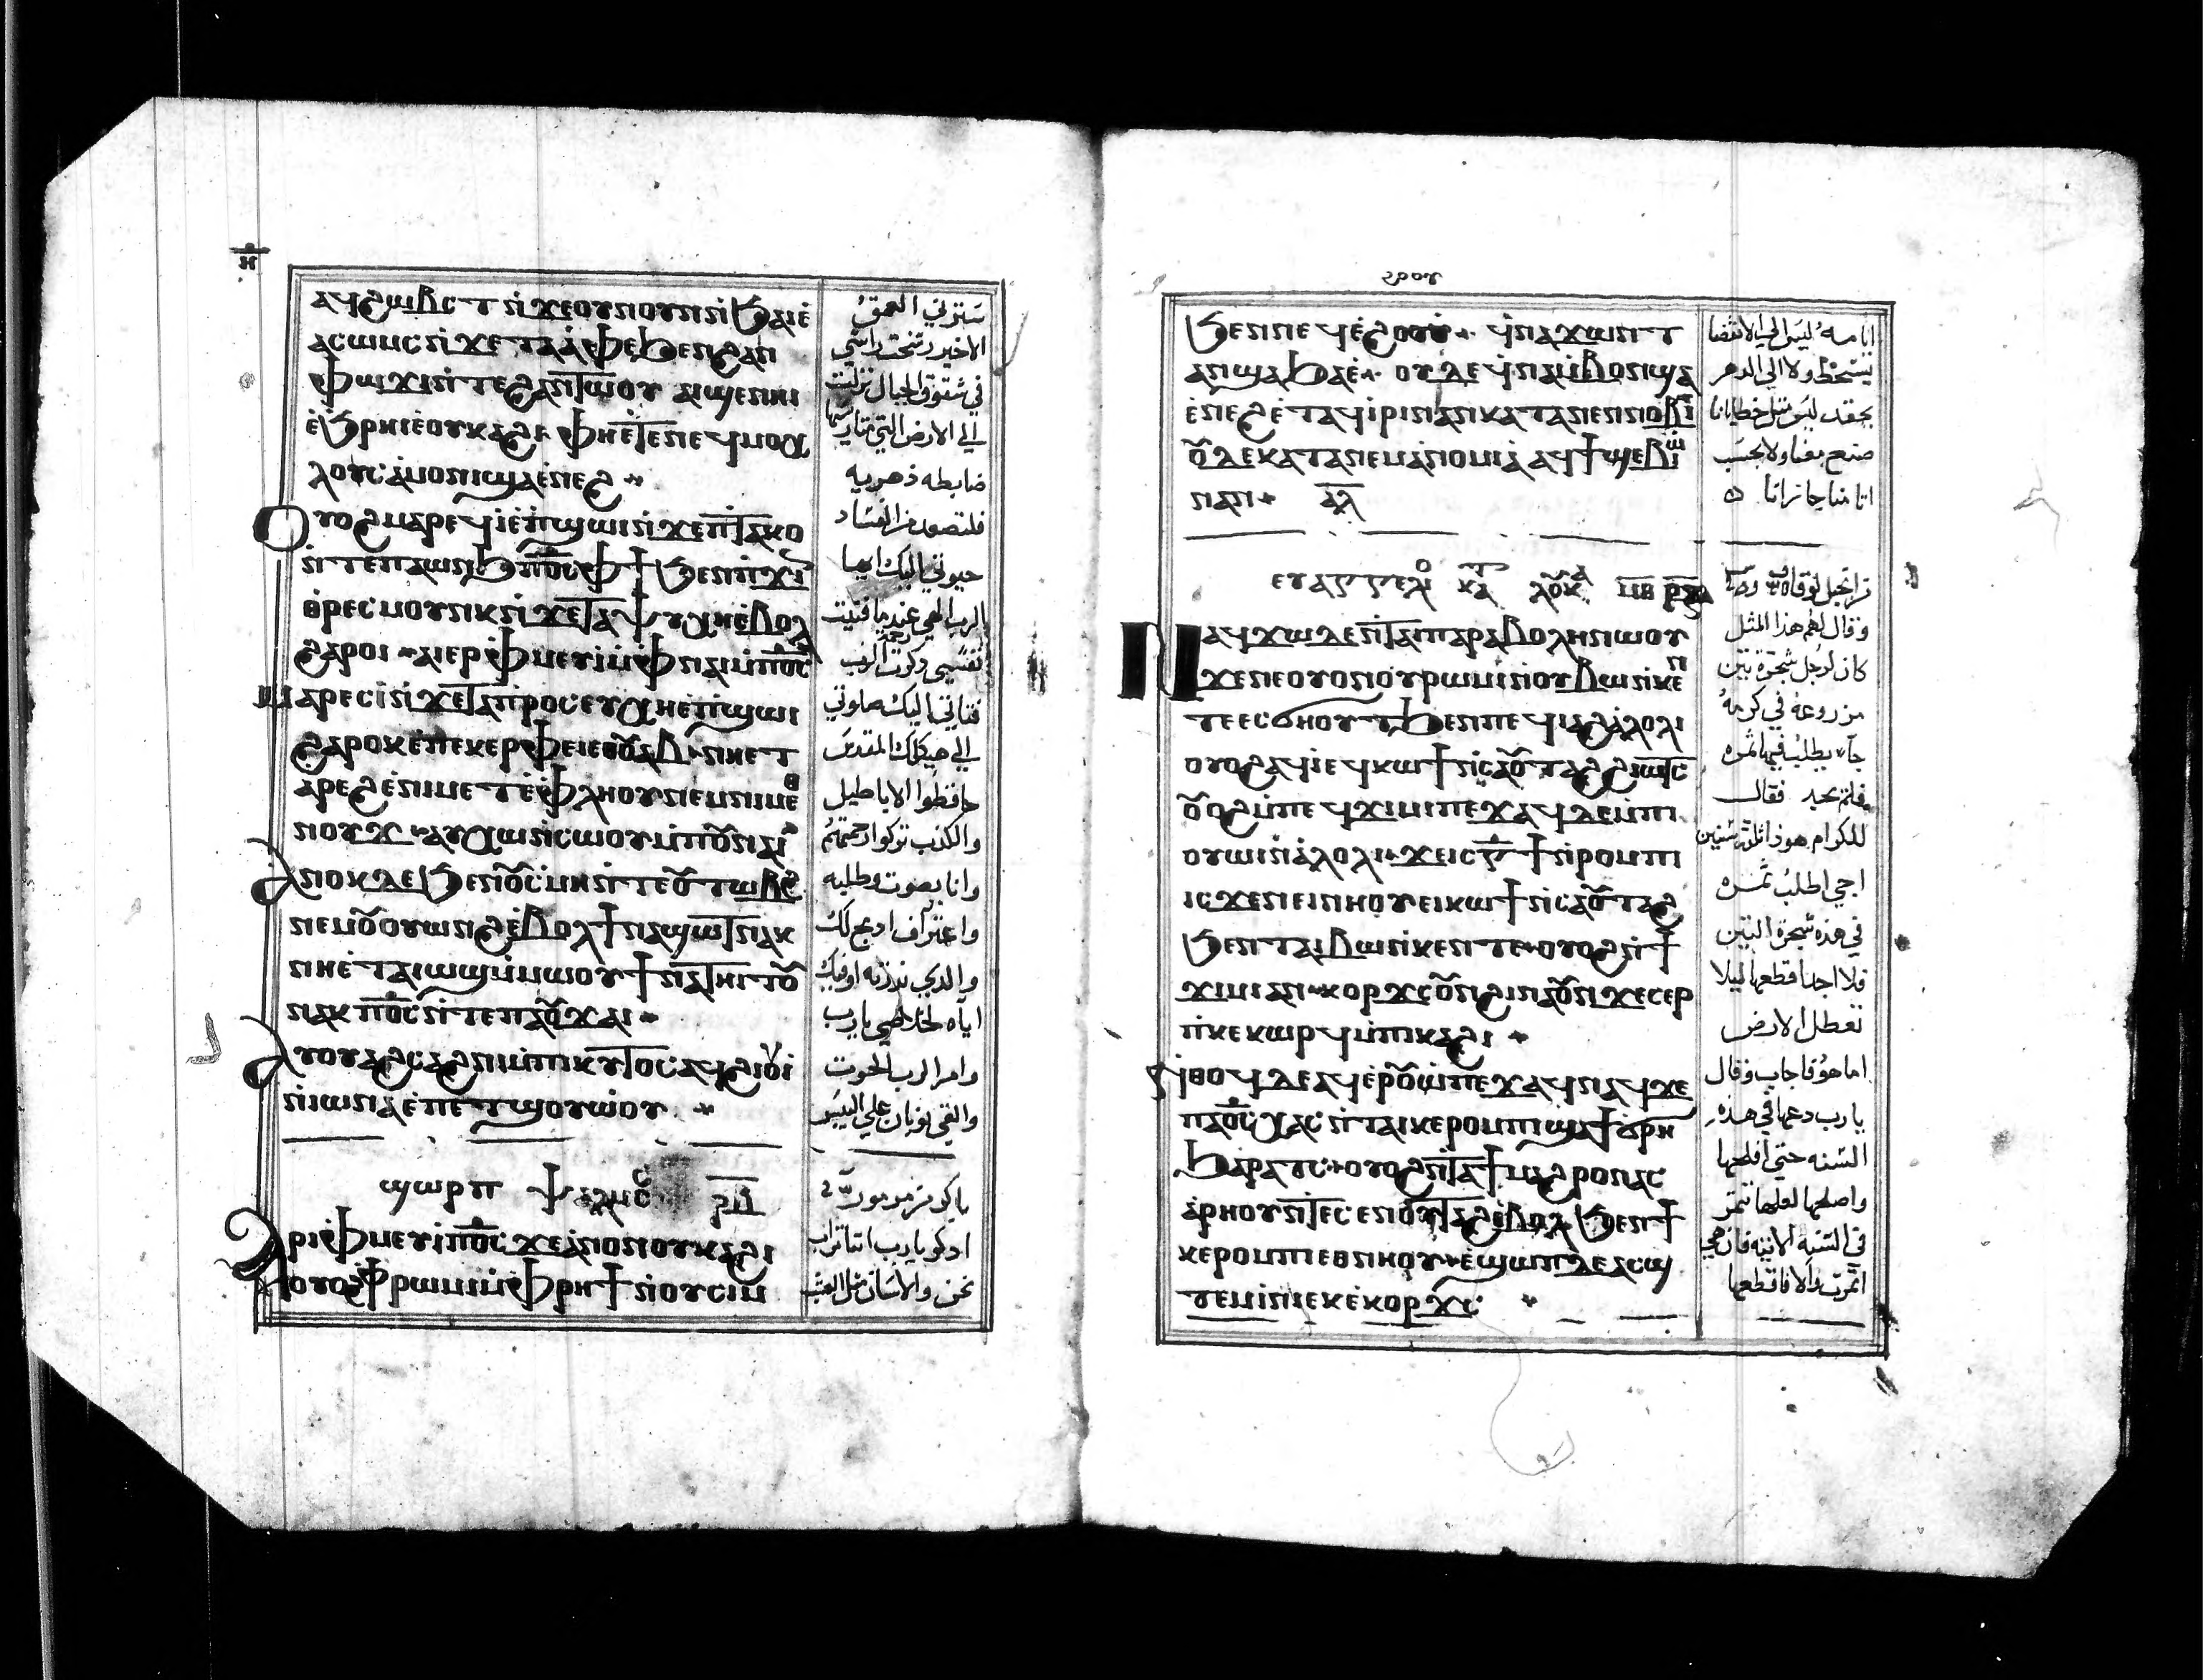 ⲏ̅
ⲁϥϩⲱⲃⲥ ⲧ ⲛ̇ϫⲉⲟⲩⲛⲟⲩⲛⲛ̇ϧⲁⲓⲉ̇
ⲁⲥⲱⲙⲥⲛ̇ϫⲉⲧⲁⲁ̇ⲫⲉϧⲉⲛϩⲁⲛ
ⲫⲱϫⲓⲛ̇ⲧⲉϩⲁⲛⲧⲱⲟⲩ ⲁⲓϣⲉⲛⲏⲓ
ⲉ̇ϧⲣⲏⲓⲉ̇ⲟⲩⲕⲁϩⲓ ⲫⲏⲉ̇ⲧⲉⲛⲉϥⲙⲟⲭ
ⲗⲟⲩⲥⲁ̇ⲙⲟⲛⲓϣⲁⲉ̇ⲛⲉϩ
ⲟⲩⲟϩⲙⲁⲣⲉϥⲓ̇ⲉ̇ⲡ̇ϣⲱⲓⲛ̇ϫⲉⲡⲧⲁⲕⲟ
ⲛ̇ⲧⲉⲡⲁⲱⲛϧ ⲡⲟ̅ⲥ̅ⲫϯ ϧⲉⲛⲡ̇ϫⲓ
ⲑ̇ⲣⲉⲥⲙⲟⲩⲛⲕⲛ̇ϫⲉⲧⲁⲯⲩⲭⲏⲉ̇ⲃⲟⲗ
ϩⲁⲣⲟⲓ ⲁⲓⲉⲣⲫⲙⲉⲩⲓ̇ⲙ̇ⲫⲛⲁⲓⲙ̇ⲡⲟ̅ⲥ̅
ⲙⲁⲣⲉⲥⲓ̇ⲛ̇ϫⲉⲧⲁⲡⲣⲟⲥⲉⲩⲭⲏⲉ̇ⲡ̇ϣⲱⲓ
ϩⲁⲣⲟⲕⲉ̇ⲡⲉⲕⲉⲣⲫⲉⲓⲉⲑⲟⲩⲁⲃ ⲛⲏⲉⲧ
ⲁ̇ⲣⲉϩⲉ̇ⲛⲓⲙⲉⲧⲉ̇ⲫⲗⲏⲟⲩⲛⲉⲙⲛⲓⲙⲉⲑ
ⲛⲟⲩϫ ⲁⲩⲭⲱⲛ̇ⲥⲱⲟⲩⲙ̇ⲡⲟⲩⲛⲁⲓ
ⲁⲛⲟⲕⲇⲉϧⲉⲛⲟⲩⲥ̇ⲙⲏⲛ̇ⲧⲉⲟⲩⲧⲱⲃϩ
ⲛⲉⲙⲟⲩⲟⲩⲱⲛϩⲉ̇ⲃⲟⲗϯⲛⲁϣⲱⲧⲛⲁⲕ
ⲛⲏⲉ̇ⲧⲁⲓⲱϣⲙ̇ⲙⲱⲟⲩϯⲛⲁⲧⲏⲓⲧⲟⲩ
ⲛⲁⲕ ⲡⲟ̅ⲥ̅ⲛ̇ⲧⲉⲡⲁⲟⲩϫⲁⲓ
ⲁⲩⲟⲩⲁϩⲥⲁϩⲛⲓⲙ̇ⲡⲓⲕⲩⲧⲟⲥⲁϥϩⲓⲟⲩⲓ̇
ⲛ̇ⲓⲱⲛⲁⲉ̇ⲡⲉⲧϣⲟⲩⲱ̇ⲟⲩ
ϣⲱⲣⲡ ⲯⲁⲗⲙⲥ
ⲁⲣⲓⲫⲙⲉⲩⲓ̇ⲡⲟ̅ⲥ̅ϫⲉⲁ̇ⲛⲟⲛⲟⲩⲕⲁϩⲓ
ⲟⲩⲟϩⲫⲣⲱⲙⲓⲙ̇ⲫⲣⲏϯⲛ̇ⲟⲩⲥⲓⲙ
سترني العمق
الاخير رسخت راسي
في شقوق الجبال نزلت
الي الارض التي متاريسها
ضابطه دهريه
فلتصعد من الفساد
حيوتي اليك ايها
الرب الهي عند ما فنيت
نفسي دكرت الرب
فتاتي اليك صلوتي
الي هيكلك المقدس
حافظوا الاباطيل
والكدب تركوا رحمتهم
وانا بصوت وطلبه
واعتراف ادبح لك
والدي ندرته اوفيك
اياه لخلاصي يارب
وامر الرب الحوت
والقي يونان علي اليبس
باكر مزمور
ادكر يارب اننا تراب
نحن والانسان مثل العشب
ϧⲉⲛⲡⲉϥⲉ̇ϩⲟⲟⲩ ϥ̇ⲛⲁϫⲱⲛⲧ
ⲁⲛϣⲁϧⲁⲉ̇ ⲟⲩⲇⲉϥ̇ⲛⲁⲓ̇ⲃⲟⲛϣⲁ
ⲉ̇ⲛⲉϩⲉ̇ⲧⲁϥⲓ̇ⲣⲓⲛⲁⲛⲕⲁⲧⲁⲛⲉⲛⲛⲟⲃⲓ
ⲟⲩⲇⲉⲕⲁⲧⲁⲛⲉⲙⲁ̇ⲛⲟⲙⲓⲁ̇ ⲁϥϯϣⲉⲃⲓⲱ̇
ⲛⲁⲛ ⲁ̅ⲗ̅
ⲉⲩⲁⲅⲅⲉⲗⲓⲟ ⲕⲁⲧ ⲗⲟⲩⲕ
ⲛⲁϥϫⲱⲇⲉⲛ̇ⲧⲁⲓⲡⲁⲣⲁⲃⲟⲗⲏⲛⲱⲟⲩ
ϫⲉⲛⲉⲟⲩⲟⲛⲟⲩⲣⲱⲙⲓⲛ̇ⲟⲩⲃⲱⲛ̇ⲕⲉⲛ
ⲧⲉⲉⲥϭⲏⲟⲩⲧϧⲉⲛⲡⲉϥⲓⲁϩⲁ̇ⲗⲟⲗⲓ
ⲟⲩⲟϩⲁϥⲓ̇ⲉϥⲕⲱϯⲛ̇ⲥⲁⲟⲩⲧⲁϩϩⲓⲱⲧⲥ
ⲟⲩⲟϩⲙ̇ⲡⲉϥϫⲓⲙⲓⲡⲉϫⲁϥⲇⲉⲙ̇ⲡⲓ
ⲟⲩⲱⲓⲛ̇ⲁ̇ⲗⲟⲗⲓ ϫⲉⲓⲥ ⲅ̅ϯⲛ̇ⲣⲟⲙⲡⲓ
ⲓⲥϫⲉⲛⲉⲓⲛⲏⲟⲩⲉⲓⲕⲱϯⲛ̇ⲥⲁⲟⲩⲧⲁϩ
ϧⲉⲛⲧⲁⲓⲃⲱⲛ̇ⲕⲉⲛⲧⲉ ⲟⲩⲟϩⲛ̇ϯ
ϫⲓⲙⲓⲁⲛ ⲕⲟⲣϫⲥⲟⲩⲛϩⲓⲛⲁⲟⲩⲛϫⲉⲥⲉⲣ
ⲡ̇ⲕⲉⲕⲱⲣϥⲙ̇ⲡⲓⲕⲁϩⲓ
ⲛ̇ⲑⲟϥⲇⲉⲁϥⲉ̇ⲣⲟⲩⲱ̇ⲡⲉϫⲁϥⲛⲁϥϫⲉ
ⲡⲁⲟ̅ⲥ̅ ⲭⲁⲥ ⲛ̇ⲧⲁⲓⲕⲉⲣⲟⲙⲡⲓϣⲁϯϭⲣⲏ
ϧⲁⲣⲁⲧⲥ ⲟⲩⲟϩⲛ̇ⲧⲁϯⲙⲁϩⲣⲟⲛⲁⲥ
ⲁⲣⲏⲟⲩⲛ̇ⲧⲉⲥⲉⲛⲟⲩⲧⲁϩⲉ̇ⲃⲟⲗϧⲉⲛϯ
ⲕⲉⲣⲟⲙⲡⲓⲉⲑⲛⲏⲟⲩ ⲉ̇ϣⲱⲡⲇⲉⲁⲥϣ
ⲧⲉⲙⲓ̇ⲛⲓⲉⲕⲉ̇ⲕⲟⲣϫⲥ
ايامه ليس الي الانقضا
يسخط ولا الي الدهر
يحقد ليس مثل خطايانا
صنع معنا ولا بحسب
اثامنا جازانا
من انجيل لوقا
وقال لهم هذا المثل
كان لرجل شجرة تين
مزروعة في كرمه
جآ يطلب فيها ثمره
فلم يجد فقال
للكرام هوذا ثلث سنين
اجي اطلب ثمره
في هذه شجرة التين
فلا اجد اقطعها ليلا
تعطل الارض
اما هو فاجاب وقال
يارب دعها في هذه
السنه حتي افلحها
واصلحها لعلها تثمر
في السنه الاتيه فان هي
اثمرت والا فاقطعها